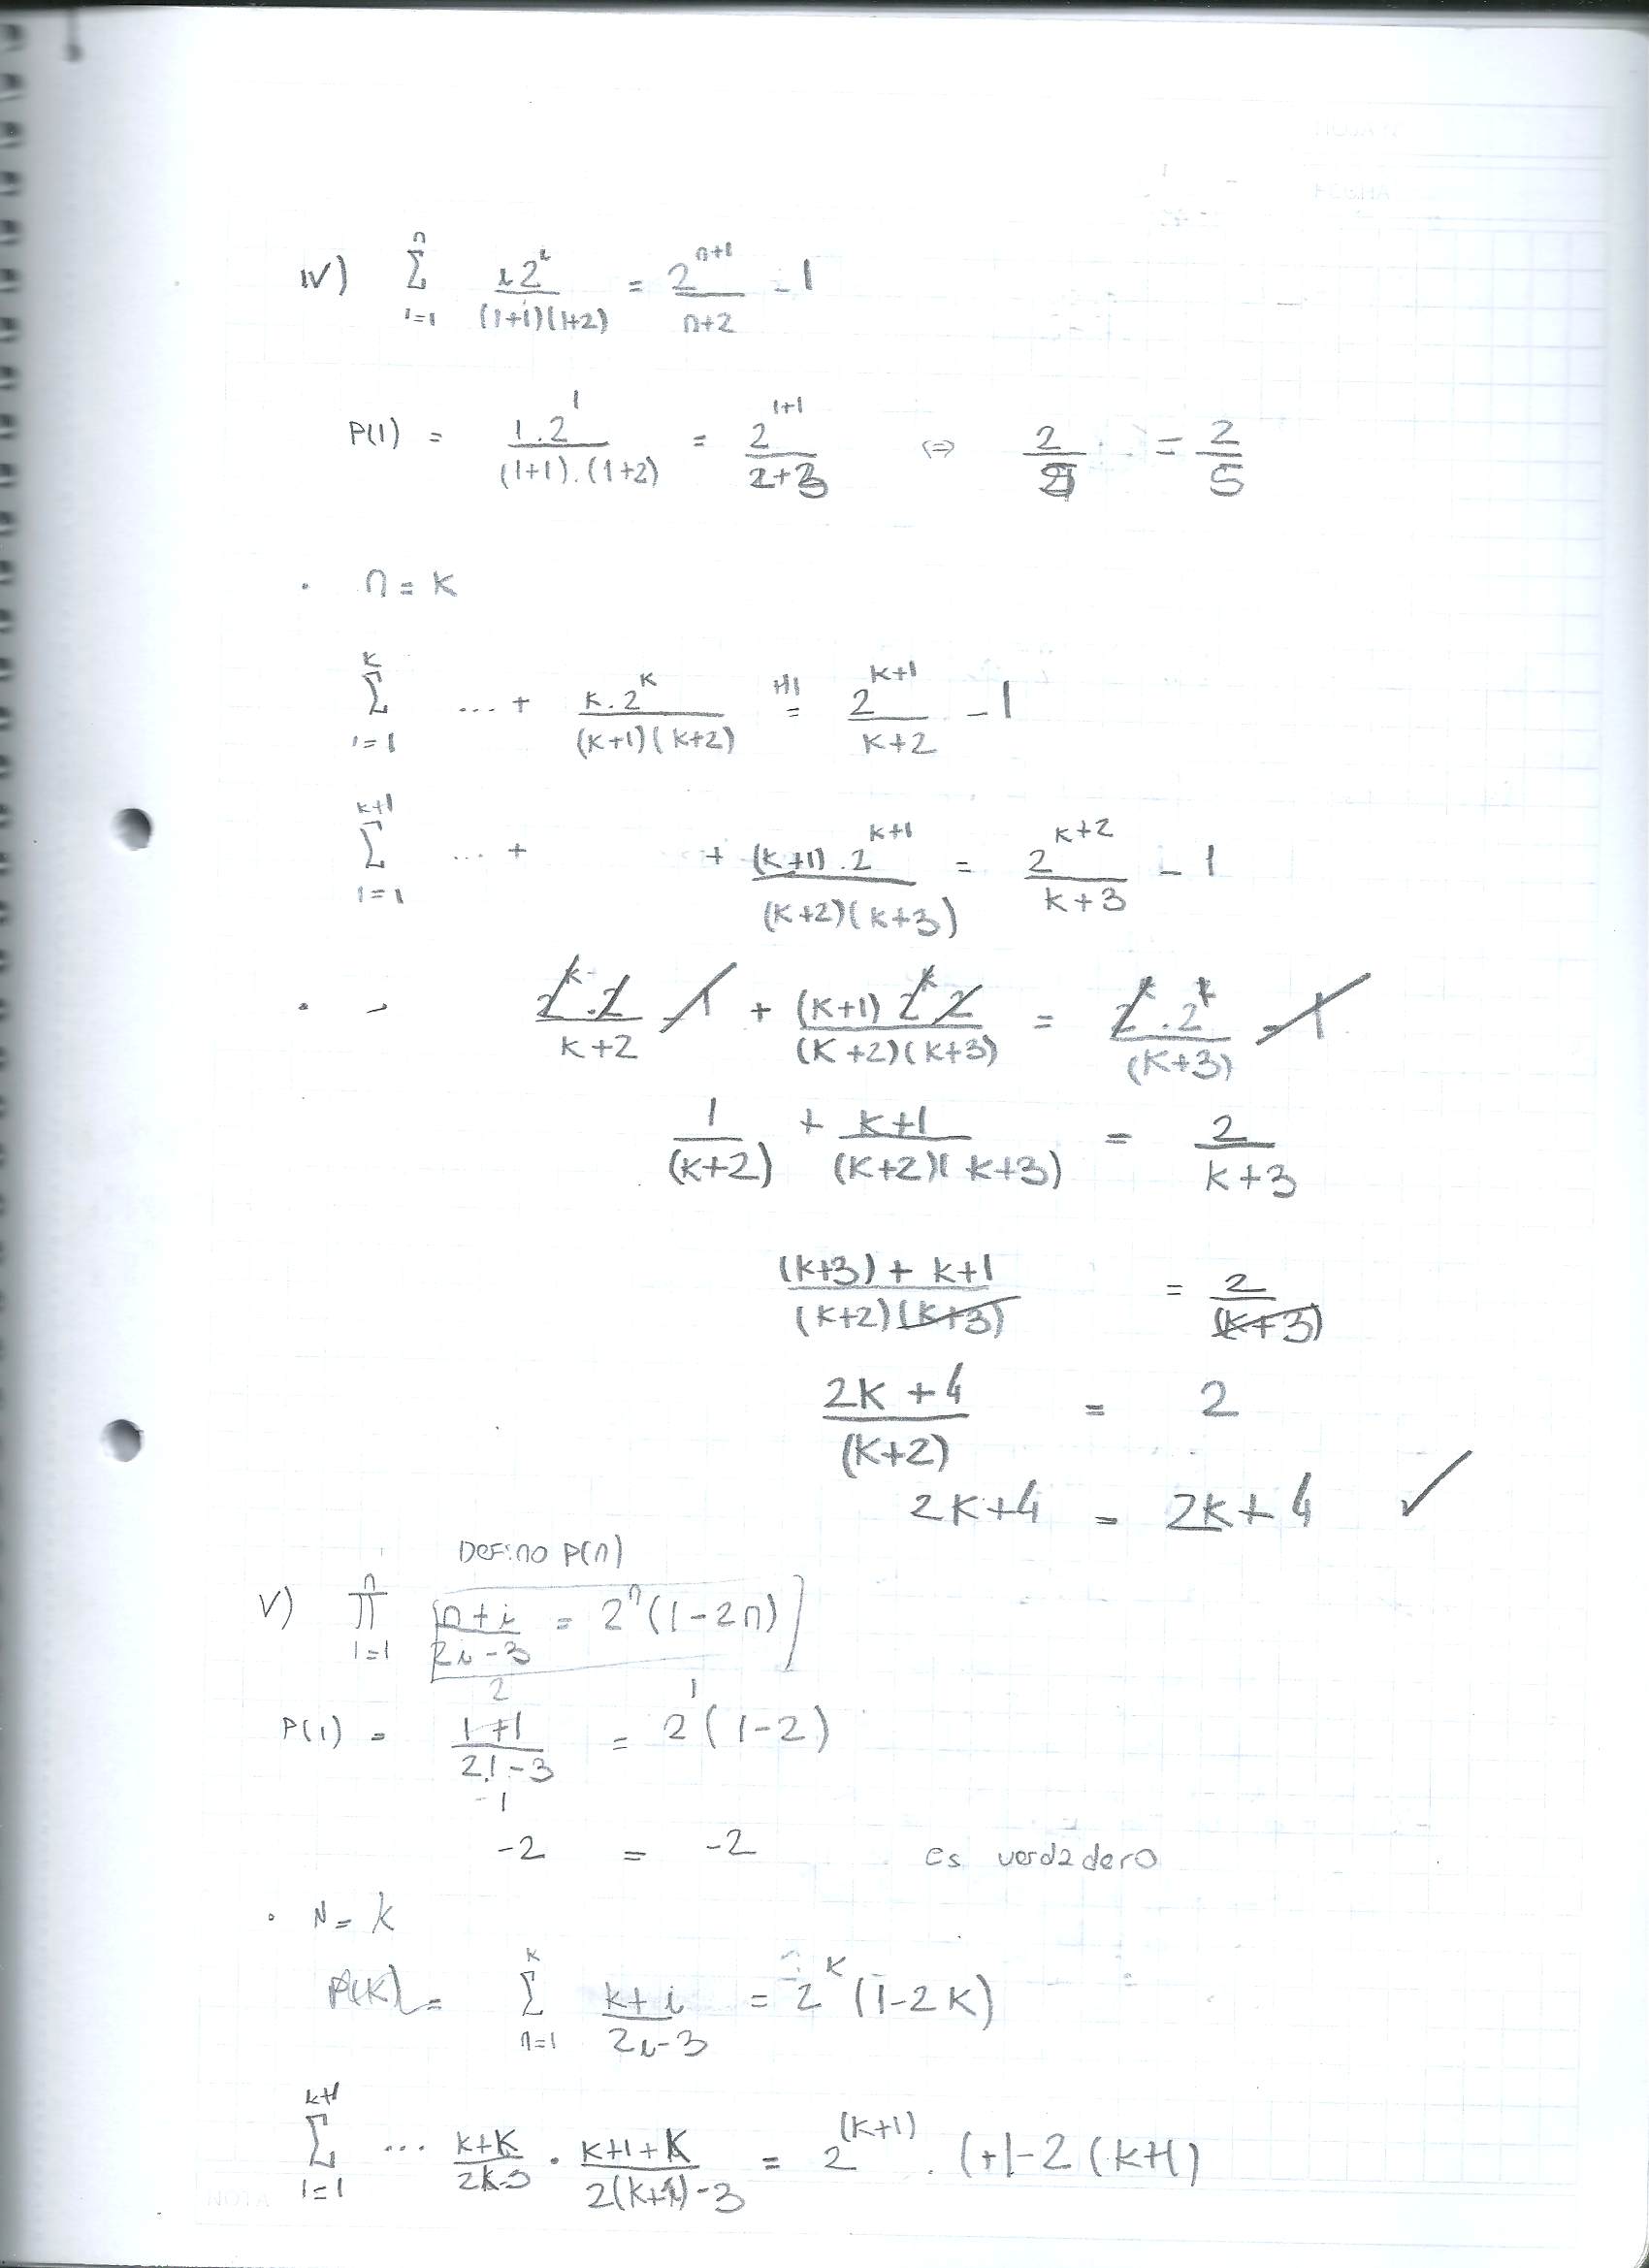 HOJA Nº
FECHA
IV) Σ_{i=1}^{n} i2^i / (1+i)(1+2) = 2^{n+1} / n+2 - 1
P(1) = 1.2^1 / (1+1).(1+2) = 2^{1+1} / 2+3 ⇔ 2 / 5 = 2 / 5
. n = k
Σ_{i=1}^{k} ... + k.2^k / (k+1)(k+2) =^{HI} 2^{k+1} / k+2 - 1
Σ_{i=1}^{k+1} ... + + (k+1).2^{k+1} / (k+2)(k+3) = 2^{k+2} / k+3 - 1
. - 2^k.2 / k+2 - 1 + (k+1) 2^k 2 / (k+2)(k+3) = 2^k.2^k / (k+3) - 1
1 / (k+2) + k+1 / (k+2)(k+3) = 2 / k+3
(k+3) + k+1 / (k+2)(k+3) = 2 / (k+3)
2k+4 / (k+2) = 2
2k+4 = 2k+4 ✓
Defino P(n)
V) Π_{i=1}^{n} [n+i / 2i-3 = 2^n (1-2n)]
2
P(1) = 1+1 / 2.1-3 = 2^1 (1-2)
-1
-2 = -2 es verdadero
. N = k
P(K) = Σ_{n=1}^{k} k+i / 2i-3 = 2^k (1-2k)
Σ_{i=1}^{k+1} ... k+k / 2k-3 . k+1+k / 2(k+1)-3 = 2^{(k+1)} . (+1-2(k+1)
NOTA